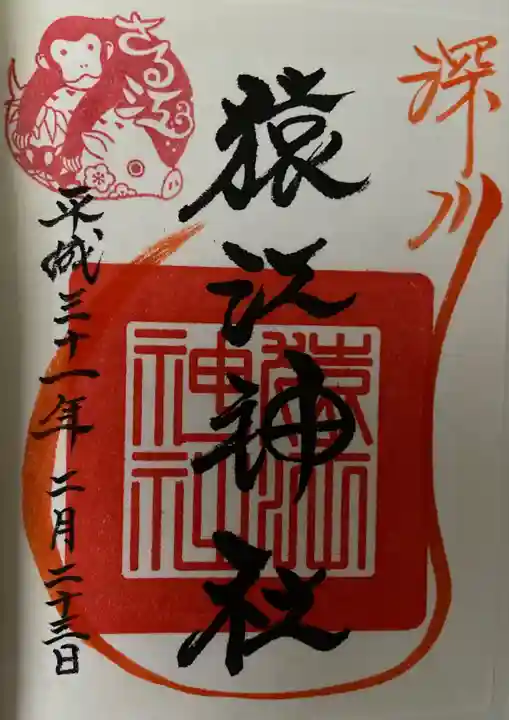 深川
猿江神社
猿江神社
さる江
平成三十一年二月二十三日